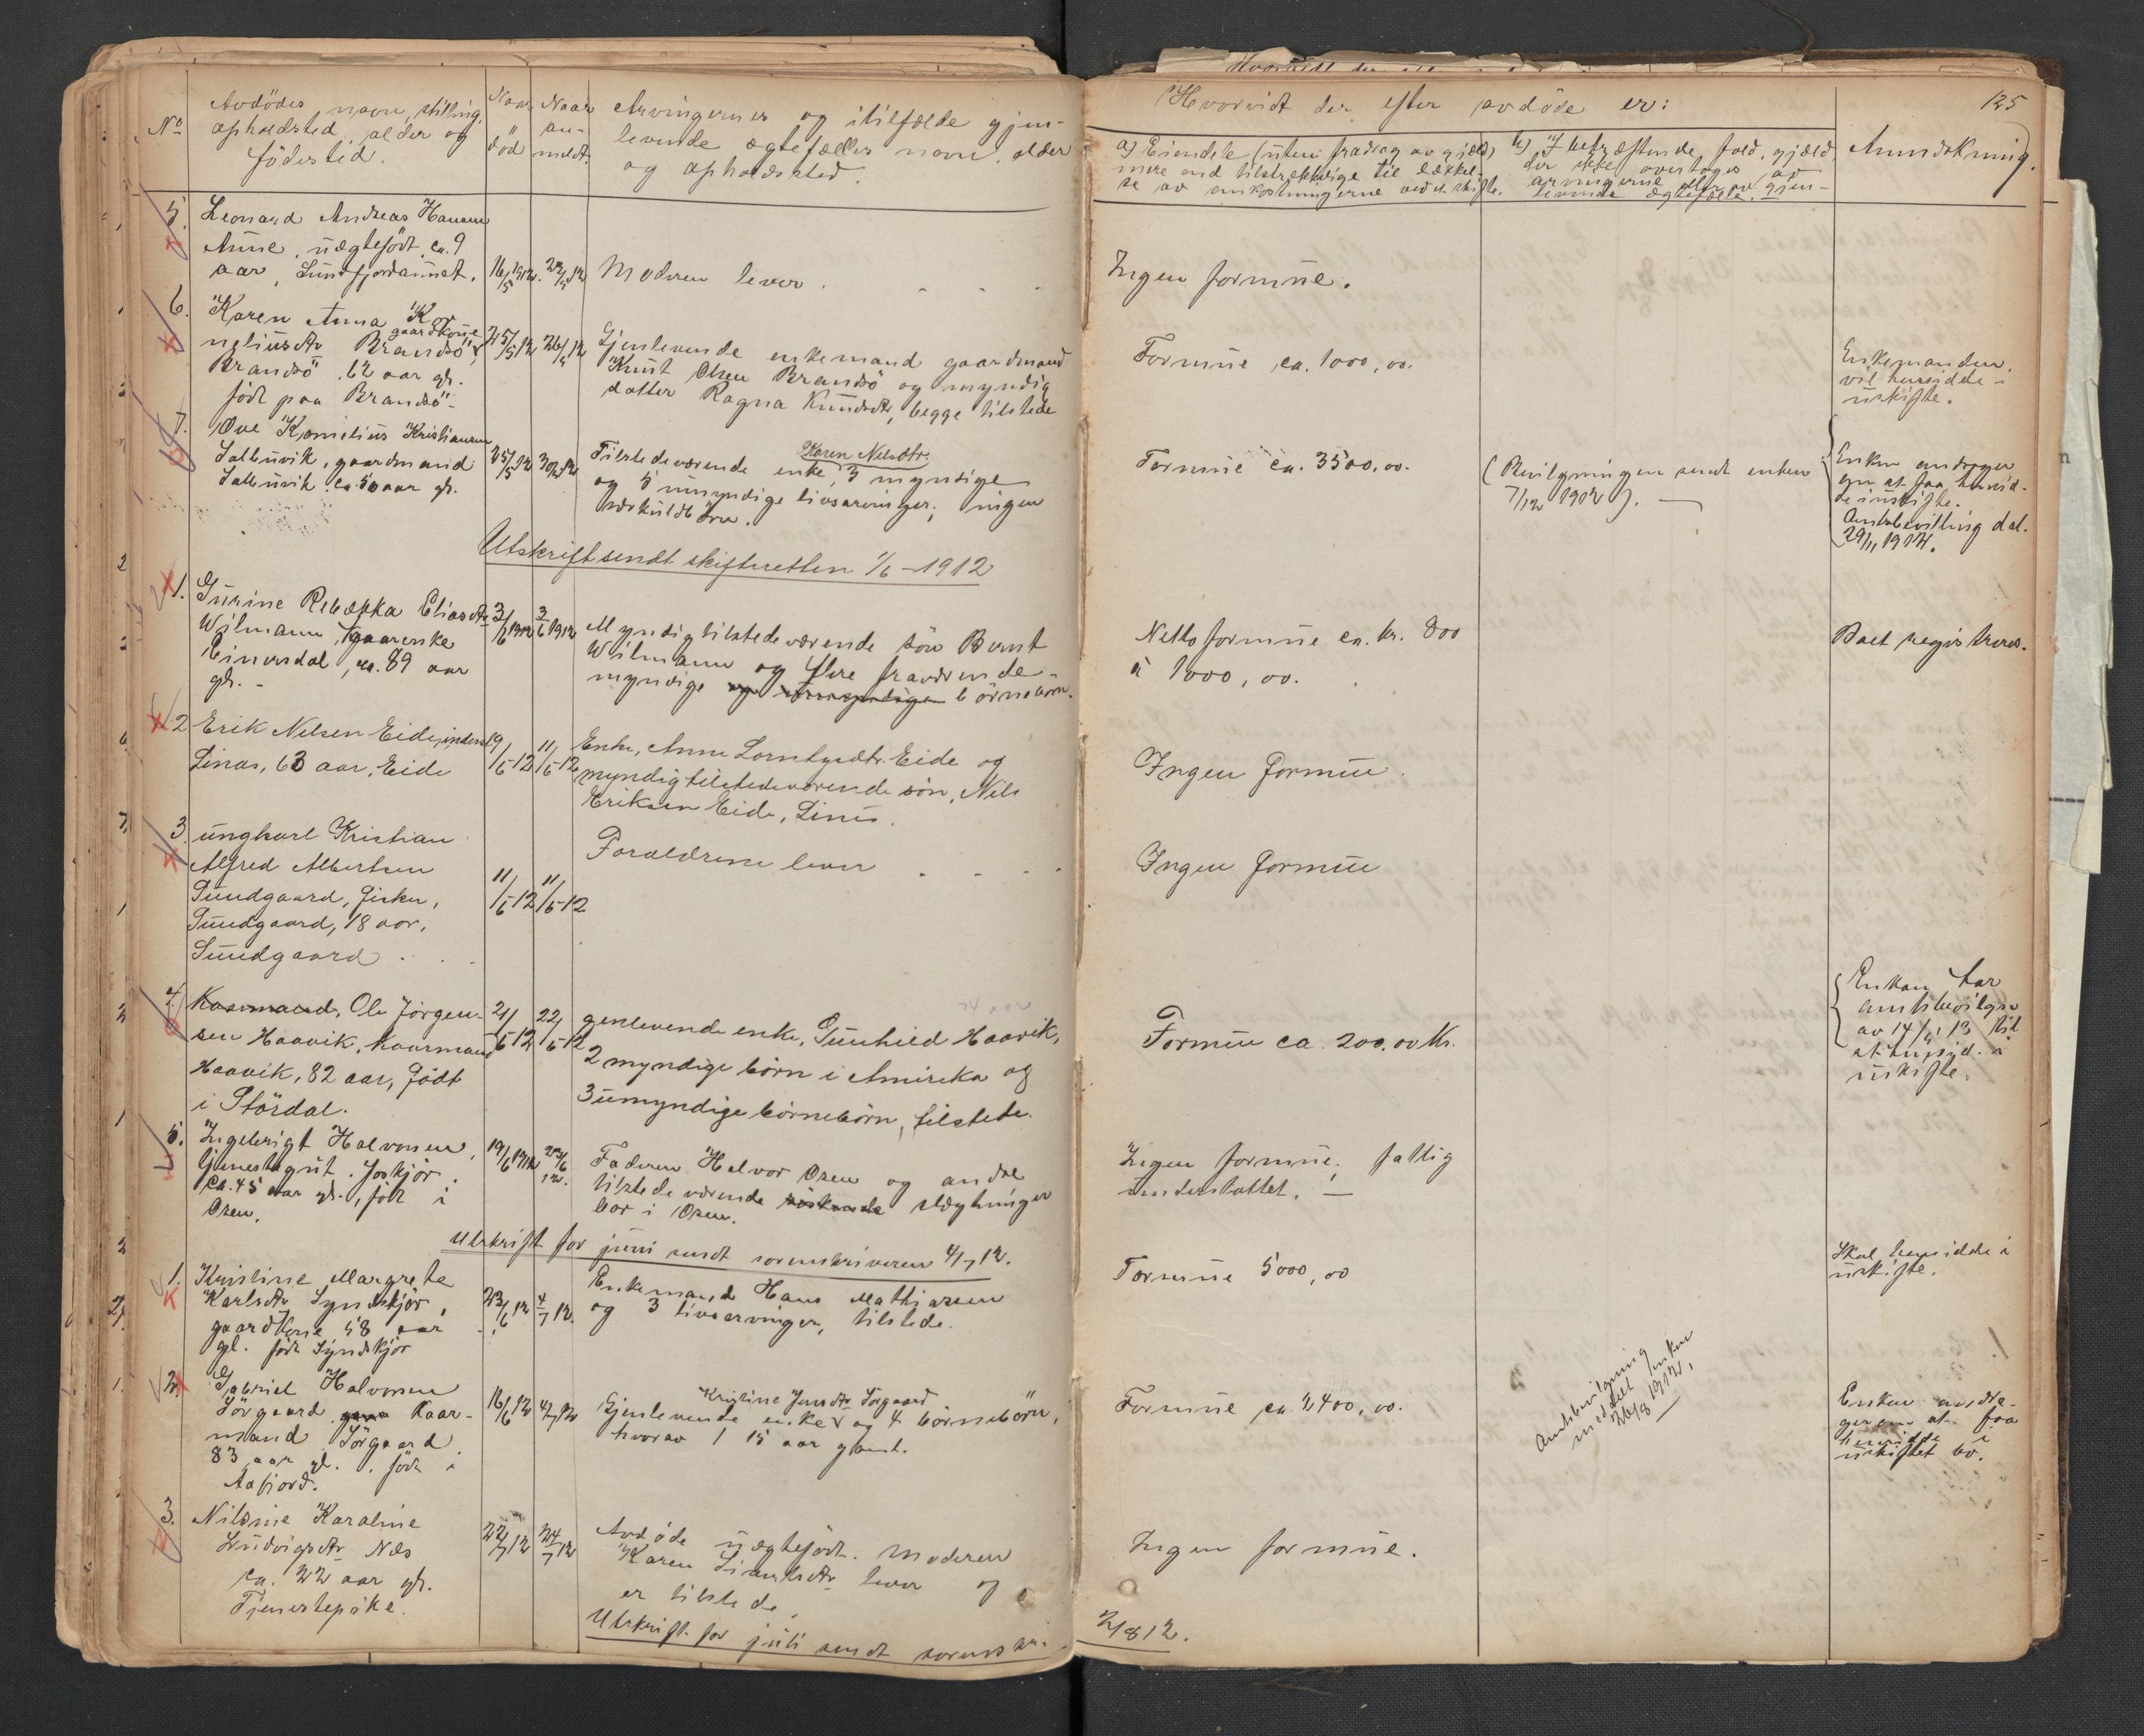 No
Avdödes navn, stilling,
opholdsted, alder og
födested.
Naar
död
Naar
an-
meldt.
Arvingernes og itilfælde gjen-
levende ægtefælles navn, alder
og opholdssted.
Hvorvidt der efter avdöde er:
125
a) Eiendele (uten fradrag av gjæld)
mere end tilstrækkelige til dækkel-
se av omkostningerne ved et skifte.
b) I bekræftende fald, gjæld,
der ikke overtages av
arvingerne eller av gjen-
levende ægtefælle.
Anmerkning.
5.
Leonard Andreas Hansen
Aune, uægtefödt, ca. 9
aar,
16/5 1912.
28/5 12
Moderen lever.
Ingen formue.
6.
Karen Anna Kor
neliusdtr Brandsö, gaardkone
Brandsö. 62 aar gl.
födt paa Brandsö.
25/5 12
26/5 12
Gjenlevende enkemand gaardmand
Knut Olsen Brandsö og myndig
datter Ragna Knudsdtr, begge tilstede
Formue ca. 1000,00.
Enkemanden
vil hensidde i
uskifte.
7.
Ove Kornelius Kristiansen
Sætervik, gaardmand
ca. 50 aar gl.
25/5 12
30/5 12
Karen Nilsdtr.
Tilstedeværende enke, 3 myndige
og 5 umyndige livsarvinger, ingen
særkuldbörn.
Formue ca. 3500,00.
(Bevilgningen sendt enken
7/12 1912).
Enken andrager
om at faa hensid-
de i uskifte.
Amtsbevilling dat.
29/11 1912.
Utskrift sendt skifteretten 1/6 - 1912
1.
Gurine Rebekka Eliasdtr
Wilmann,
ca. 89 aar
gl.
3/6 1912
3/6 1912
Myndig tilstedeværende sön Bernt
Wilmann og flere fraværende
myndige börnebörn.
Netto formue ca. kr. 800
à 1000,00.
Boet registreres.
2
Erik Nilsen Eide, inderst
Linas, 63 aar, Eide
9/6-12
11/6-12
Enke, Anne Lorntsdtr. Eide og
myndig tilstedeværende sön, Nils
Eriksen Eide, Lines.
Ingen formue.
3
ungkarl Kristian
Alfred Albertsen
Sundgaard, fisker,
Sundgaard, 18 aar,
Sundgaard
11/6-12
11/6-12
Forældrene lever
Ingen formue
4.
Kaarmand, Ole Jörgen-
sen Haavik, kaarmand
Haavik, 82 aar, födt
i Stördal.
21/6-12
22/6-12
genlevende enke, Gunhild Haavik,
2 myndige börn i Amirika og
3 umyndige börnebörn, tilstede.
Formue ca. 200,00 kr.
Enken har
amtsbevilgn
av 14/1 13 til
at hensid. i
uskifte.
5.
Ingebrigt Halvorsen,
tjenestegut. Joskjör.
ca. 45 aar gl., födt i
Osen.
19/6 1912
Faderen Halvor Osen og andre
tilstedeværende söskende slægtninger
bor i Osen.
Ingen formue; fattig
understöttet. —
Utskrift for juni sendt sorenskriveren 4/7 12.
1.
Kristine Margrete
Karlsdtr Syndskjör,
gaardkone 58 aar
gl. födt Syndskjör
23/6 12
4/7 12.
Enkemand Hans Mathiasen
og 3 livsarvinger, tilstede.
Formue 5000,00
Skal hensidde i
uskifte.
2.
Gabriel Halvorsen
Sörgaard Kaar-
mand Sörgaard.
83 aar gl. födt i
Aafjord.
16/6 12
4/7 12
Kristine Jensdtr Sörgaard
Gjenlevende enke og 4 börnebörn,
hvorav 1 15 aar gamt.
Formue ca 2400,00.
Amtsbevilgning
meddelt enken
26/8 1912.
Enken andra-
ger om at faa
hensidde i
uskiftet bo.
3.
Nilsine Karoline
Ludvigsdtr Næs
ca. 22 aar gl.
Tjenestepike.
22/7 12
24/7 12
Avdöde uægtefödt. Moderen
Karen lever og
er tilstede.
Ingen formue.
Utskrift for juli sendt sorenskr.
2/8 12.